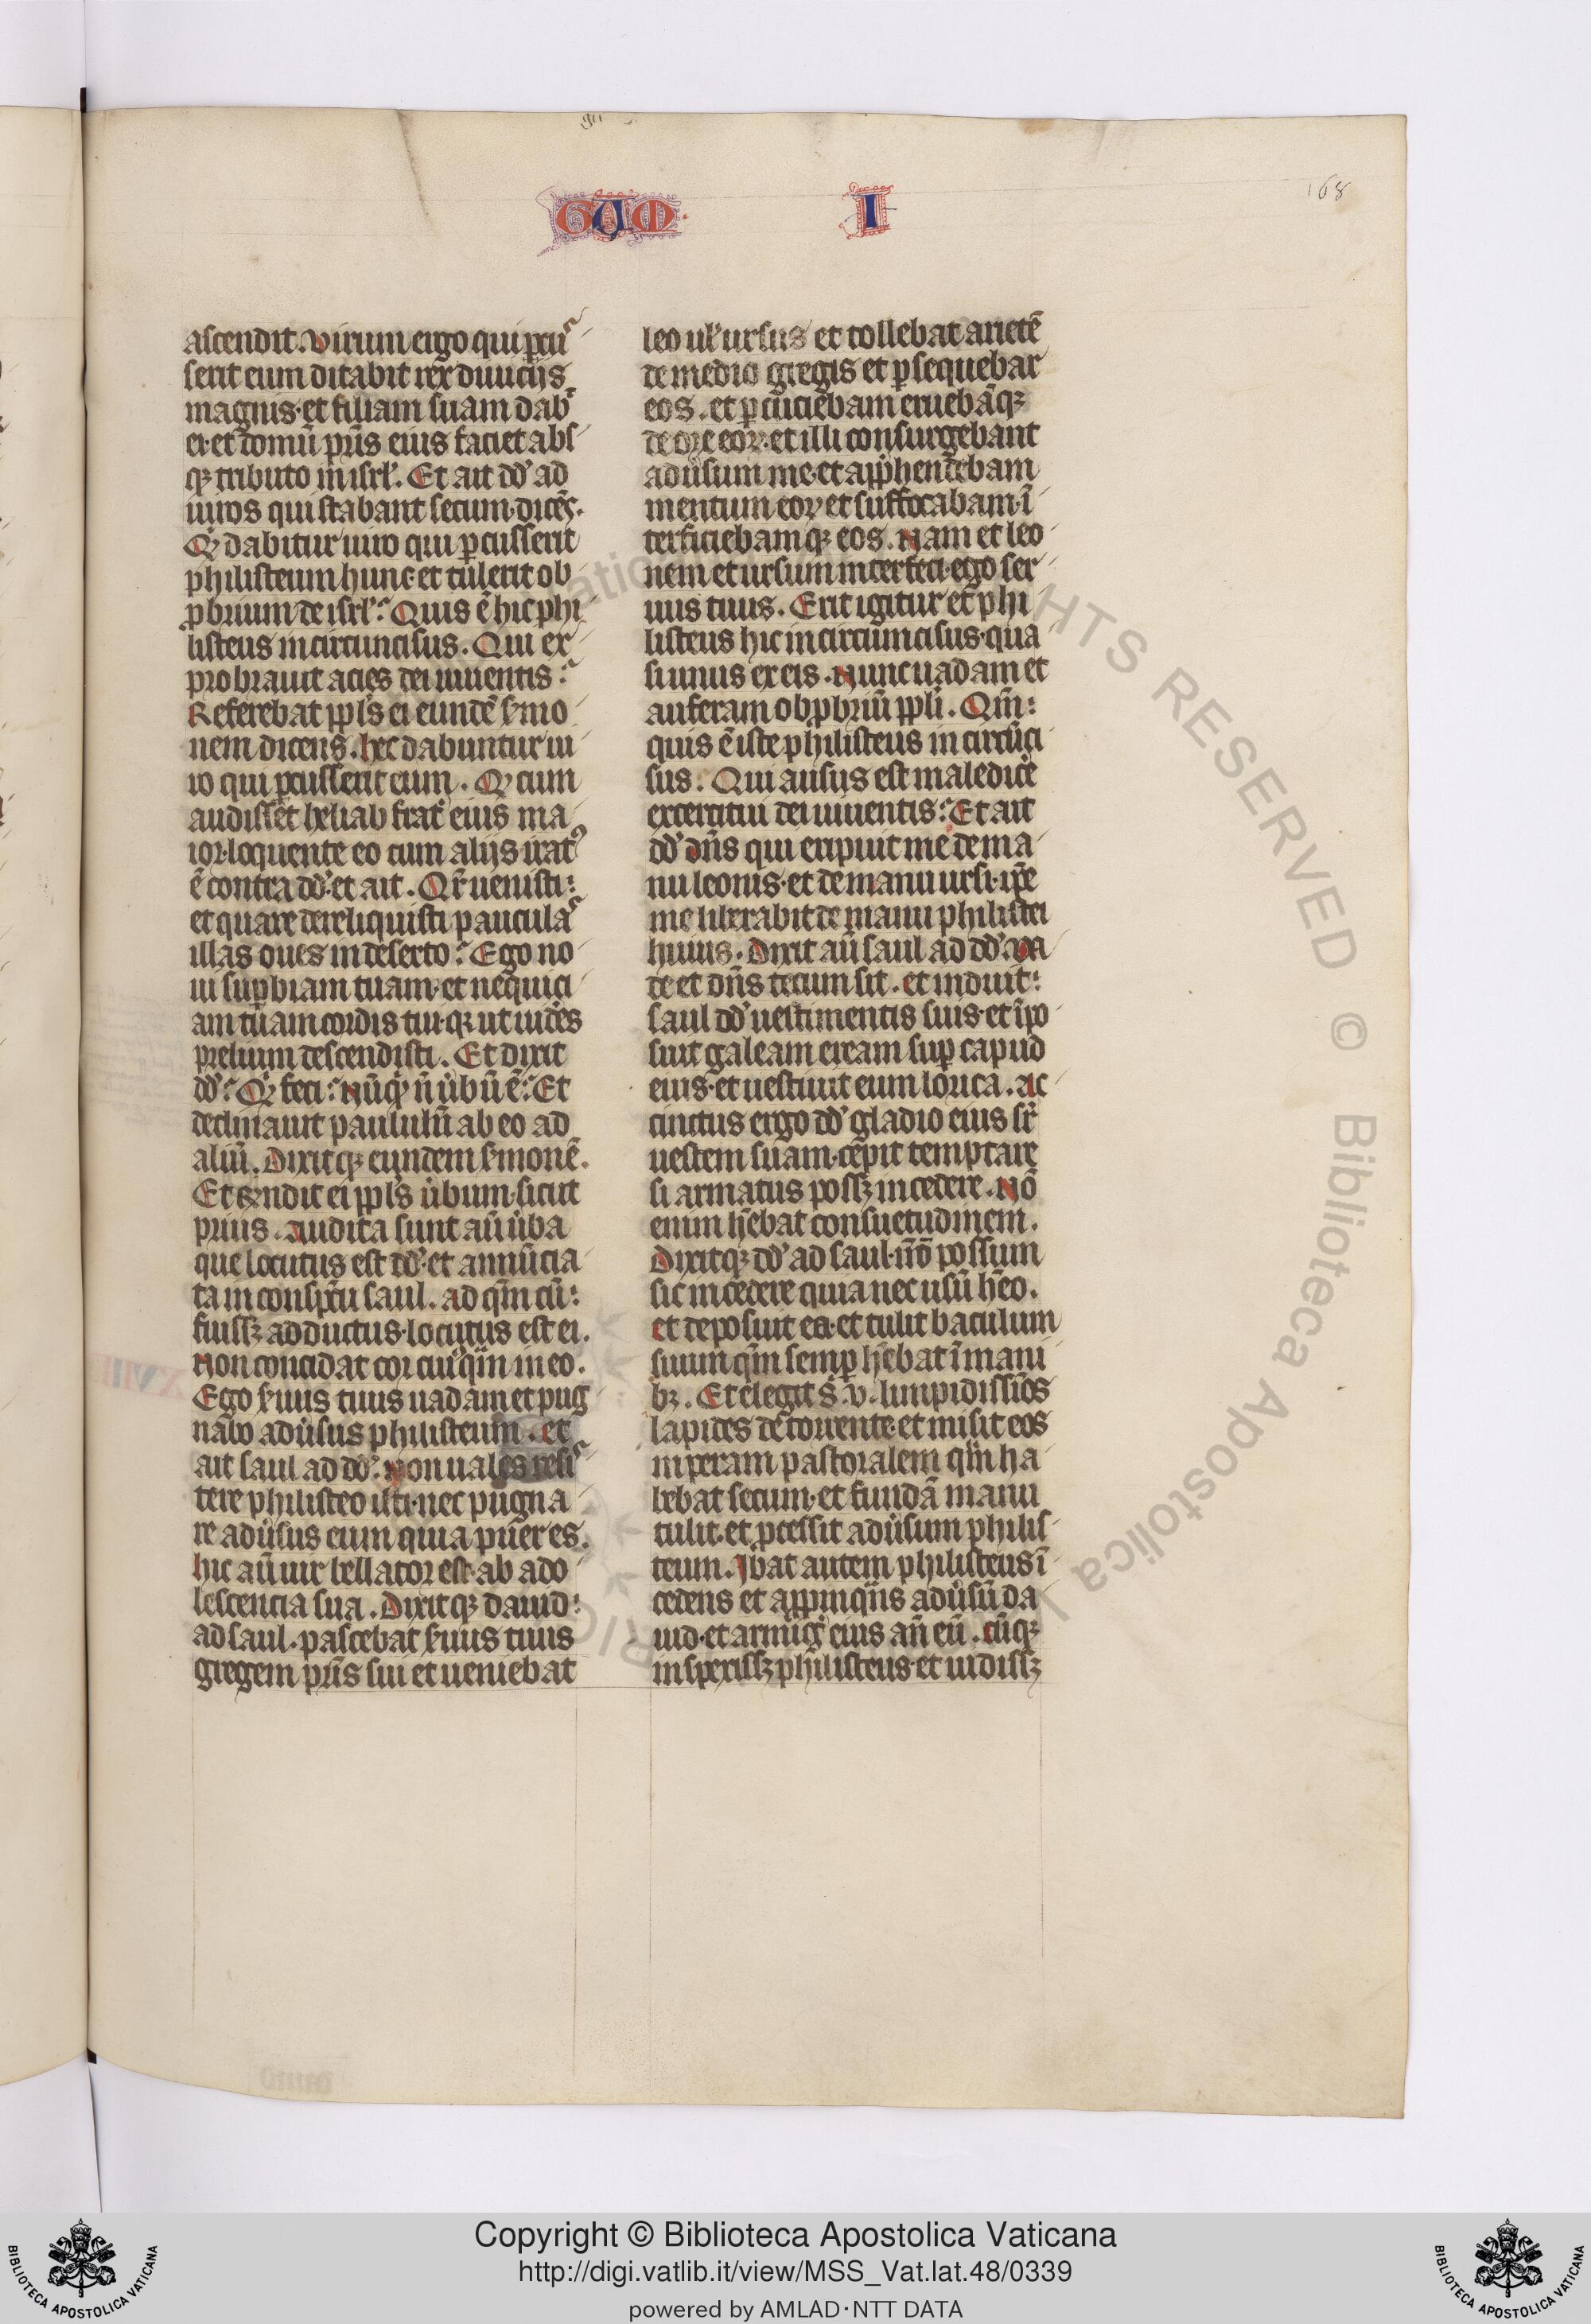 REGUM I
168
ascendit. Virum ergo qui ꝑcuſ
serit eum ditabit rex diuicijs
magnis· et filiam suam dab̄
ei· et domū pr̄is eius faciet abs
qꝫ tributo in isrl̓. Et ait dd̓ ad
uiros qui stabant secum· dicēs·
Qͥ dabitur uiro qui ꝑcusserit
philisteum hunc· et tulerit ob
ꝓbrium de isrl̓? Quis ē hic phi
listeus incircuncisus. Qui ex
probrauit acies dei uiuentis?
Referebat ppl̓s ei eundē ẜmo
nem dicens. hec dabuntur ui
ro qui ꝑcusserit eum. Qͥ cum
audisset heliab frat̓ eius ma
ior· loquente eo cum alijs· iratꝰ
ē contra dd̓· et ait. Qr̄ uenisti:
et quare dereliquisti paucula
illas oues in deserto? Ego no
ui suꝑbiam tuam· et nequici
am tuam cordis tui· qꝫ ut uid̓es
prelium descendisti. Et dixit
dd̓? Qͥ feci? Nūqͥ n̄ u̓bū ē? Et
declinauit paululū ab eo ad
aliū. Dixitqꝫ eundem ẜmonē.
Et rn̄dit ei ppl̓s u̓bum· sicut
prius. Audita sunt aū u̓ba
que locutus est dd̓· et annūcia
ta in conspc̄u saul. ad qm̄ cū:
fuissꝫ adductus· locutus est ei.
Non concidat cor cuiqͣm in eo.
Ego ẜuus tuus uadam et pug
nabo adu̓sus philisteum. et
ait saul ad dd̓. Non uales resiſ
tere philisteo isti· nec pugna
re adu̓sus eum quia puer es.
hic aū uir bellator est· ab ado
lescencia sua. Dixitqꝫ dauid:
ad saul. pascebat ẜuus tuus
gregem pr̄is sui et ueniebat
leo ul̓ ursus et tollebat arietē
de medio gregis et ꝑsequebar
eos. et ꝑcuciebam eruebāqꝫ
de ore eoꝝ· et illi consurgebant
adu̓sum me· et app̄hendebam
mentum eoꝝ et suffocabam· ī
terficiebamqꝫ eos. Nam et leo
nem et ursum interfeci· ego ser
uus tuus. Erit igitur et̄ phi
listeus hic incircuncisus· qua
si unus ex eis. Nunc uadam et
auferam obꝓbriū ppl̓i. Qm̄:
quis ē iste philisteus incircūci
sus: Qui ausus est maledic̓e
excercitui dei uiuentis? Et ait
dd̓ dn̄s qui eripuit me de ma
nu leonis· et de manu ursi· ip̄e
me liberabit de manu philistei
huius. Dixit aū saul ad dd̓. Ua
de et dn̄s tecum sit. et induit:
saul dd̓ uestimentis suis· et īpo
suit galeam eream suꝑ capud
eius· et uestiuit eum lorica. Ac
cinctus ergo dd̓ gladio eius sr̄
uestem suam· cepit temptare
si armatus possꝫ incedere. Nō
enim hēbat consuetudinem.
Dixitqꝫ dd̓ ad saul· nō possum
sic incedere quia nec usū hēo.
et deposuit ea· et tulit baculum
suum qm̄ semꝑ hēbat ī mani
bꝫ. Et elegit s̄. v. limpidissīos
lapides de torrente· et misit eos
in peram pastoralem qͣm ha
bebat secum· et fundā manu
tulit· et ꝓcessit adu̓sum philis
teum. Ibat autem philisteus ī
cedens et apꝓinqͣns adu̓sū da
uid· et armig̓ eius an̄ eū. cūqꝫ
inspexissꝫ philisteus· et uidissꝫ
Copyright © Biblioteca Apostolica Vaticana
http://digi.vatlib.it/view/MSS_Vat.lat.48/0339
powered by AMLAD·NTT DATA